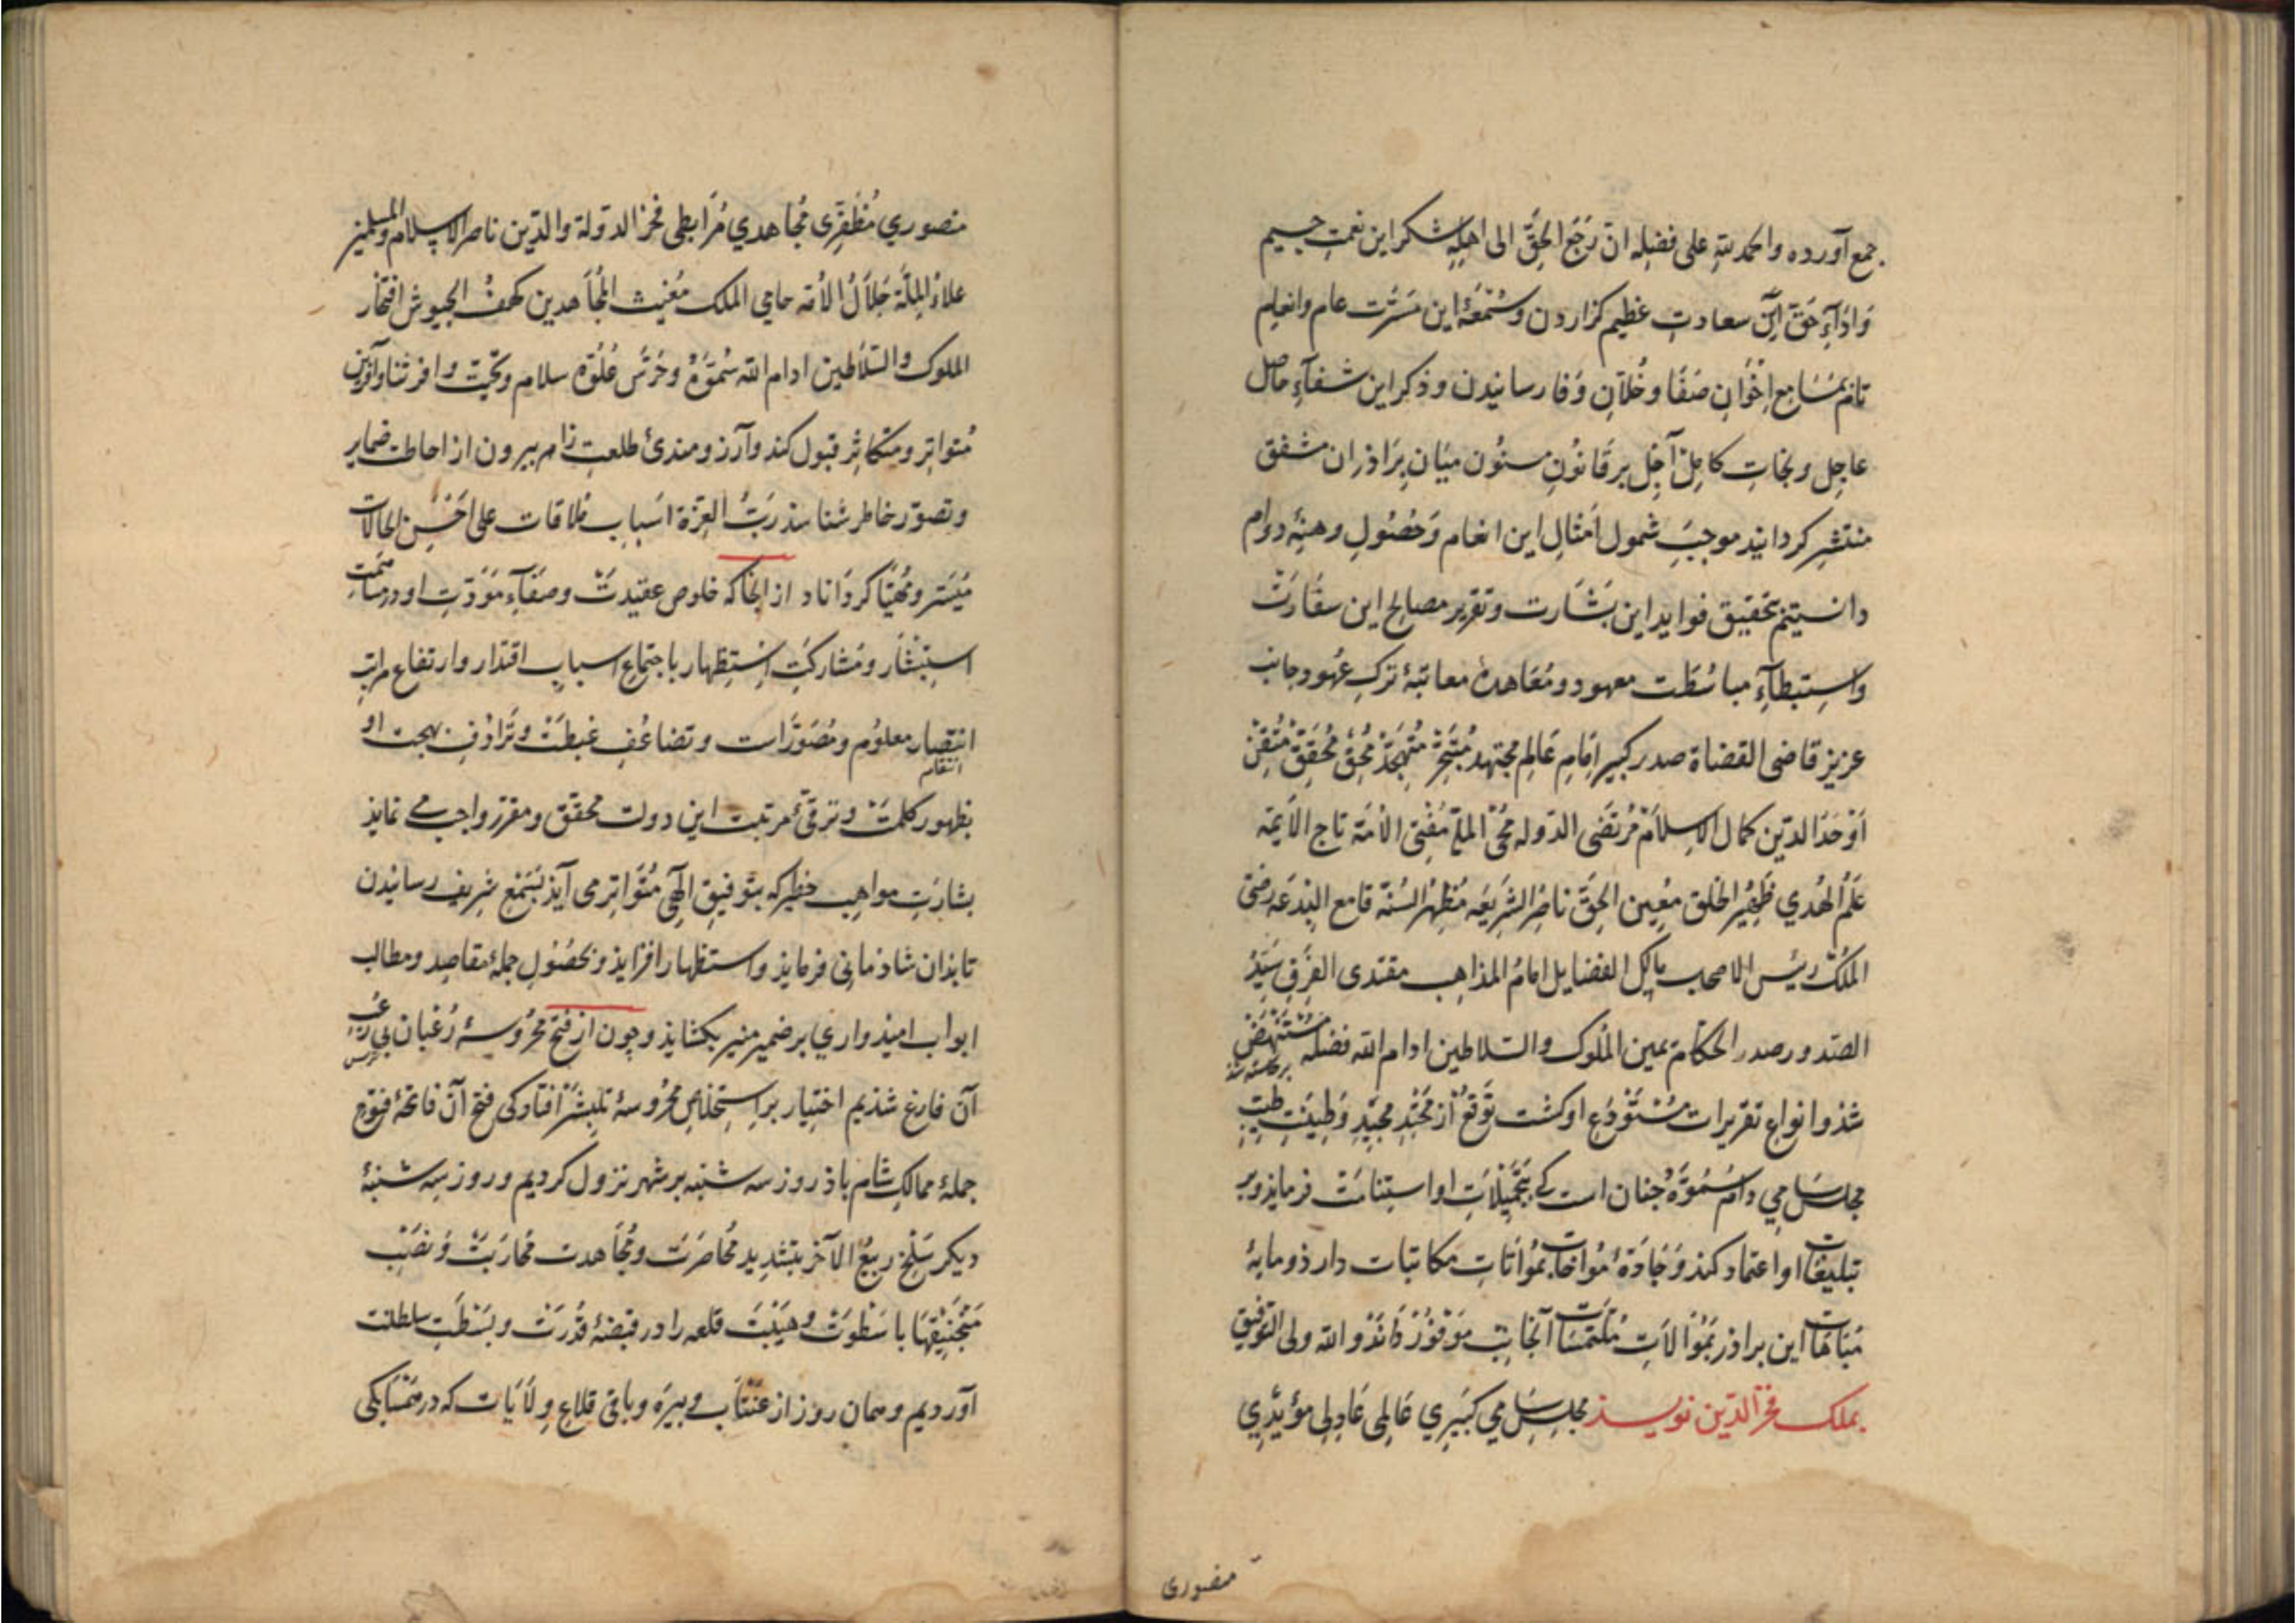 جمع آورده والحمد للهِ على فضلِه ان رَجَعَ الحقَّ الى اهلِهِ شکر این نعمتِ جسیم
وَادَآءِ حَقِّ این سعادتِ عظیم کزاردن وسُمْعَهٔ این مَسَرَّت عام وانعام
تام بمَسَامِع اِخْوَانِ صَفَا وخُلّانِ وَفا رسانیدن وذکر این شفآءِ حاصل
عاجِل ونجاتِ کامِل آجِل بر قَانُونِ مسنُون میَان بِرَاذران مشفق
منتشِر کردانیذ موجبِ شمول اَمْثالِ این انعام وَحُصُولِ وهبهٔ دوام
دانستیم تحقیق فواید این بَشَارت وتقریر مصالح این سفَارَتْ
واستِبطآءِ مباسَطَت معهود ومُعَاهدهٔ معاتبهٔ ترکِ عُهود جانب
عزیز قاضی القضاة صدر کبیر اِمَامِ عَالِم مجتهد مُتَبَحِّرْ مُتَهَجِّدْ مُحِقّ مُحَقِّقْ مُتْقِنْ
اَوْحَدُ الدّین کمال الاِسلامْ مُرْتَضَی الدّوله مُحْیِ الملّة مُفْتی الأمّة تاج الأیمّه
عَلَمُ الهُدی ظَهِیرُ الخلق مُعِین الحقِّ ناصِرُ الشَرِیعَه مُظهرُ السُنّة قامع البِدْعَه رضیّ
المُلکْ رییْس الاصحاب مالکِ الفضایل امامُ المذاهِب مقتدی الفِرَق سَیّدُ
الصّدور صدر الحکّام یمین المُلوک والسّلاطین ادام الله فضله مُسْتَنْهَضْ
برخاسته شذ
شذ وانواع تقریرات مُسْتَوْدَعِ او کشت تَوَقّعْ از مَحْتِدِ مجیّدِ وَطِینَتِ طیّبِ
مجلس سَامِی دامَ سُمُوُّهُ جنان است که بتَحَمِیلاتِ او استنامَتْ فرمایذ وبر
تبلیغَاتِ او اعتماد کنذ وَجَادّهٔ مُؤاخاتْ بمُوَاتاتِ مکاتبات دارذ ومایهٔ
مُبَاهَاتِ این براذر بمُوَالاَتِ مُلتَمَسَاتِ آنجانِبْ مَوْفُوْر دَانَذ والله ولی التوفیق
بملک فخر الدّین نویسذ مجلِسِ سَامِی کَبَیرِی عَالِمِی عَادِلِی مؤیّدِی
منصوری
منصوری مُظَفَّرِی مُجَاهدی مُرَابطی فخر الدّولة والدّین ناصر الاسلام والمسلمین
علاءُ المِلّة جَلاَلُ الاُمّة حامی الملک مُغیث المُجاهدین کهفُ الجیوش افتخار
الملوک والسّلاطین ادام الله سُمُوَّهُ وحَرَسَ عُلُوَّه سلام وتحیّت وافر ثنا وآفرین
مُتواتِر ومتکاثِر قبول کند وآرزومندئ طلعتِ زاهر بیرون از احاطت ضمایر
وتصوّر خاطر شناسذ رَبُّ العِزّة اَسباب مُلاقات علی اَحْسَنِ الحالات
مُیَسَّر ومُهَیَّا کردَاناد از انجا که خلوص عقیدتْ وصفَآءِ مَوَدّتِ او در مساهمت
استِبْشَار ومُشارکتِ اسْتِظهار باجتماع اسبابِ اقتدار وارتفاع مراتب
انتصار معلوُم ومُصَوَّر است وتضاعُفِ غبطَتْ وتَرادُفِ بهجت او
انتقام
بظهور کلمَتْ وترقّئ مرتبت این دولت محقّق ومقرر واجب می نمایذ
بشارَتِ مواهِب خطیر که بتوفیقِ الٓهی مُتَواتِر می آیذ بسَمْعِ شریف رسانیدن
تا بذان شاذمانی فرمایذ واستظهار افزایذ وبحُصُولِ جملهٔ مقاصِد ومطالب
ابواب امیذواری بر ضمیر منیر بکشایذ وچون از فتحِ مَحْرُوسهٔ رَعْبان بی رُعْبِ
ترس
آن فارغ شذیم اختیار بر استِخْلاصِ محرُوسهٔ تلبشَرْ افتاد کی فتح آن فاتحهٔ فتوح
جملهٔ ممالکِ شام باذ روز سه شنبه بر شهر نزول کردیم وروز سِه شنبهٔ
دیکر سَلْخِ ربیعُ الآخر بتشدِید مُحَاصَرَتْ ومُجَاهدت مُحَارَبَتْ وَنَصْبِ
مَنْجَنِیقهَا با سَطْوَتْ وهَیْبَتْ قلعه را در قبضهٔ قُدْرَتْ وبَسْطَتِ سلطنت
آوردیم وهمان روز از عَنتَاب وبیرَه وباقی قلاع وِلاَیَات که در مَسَالکی